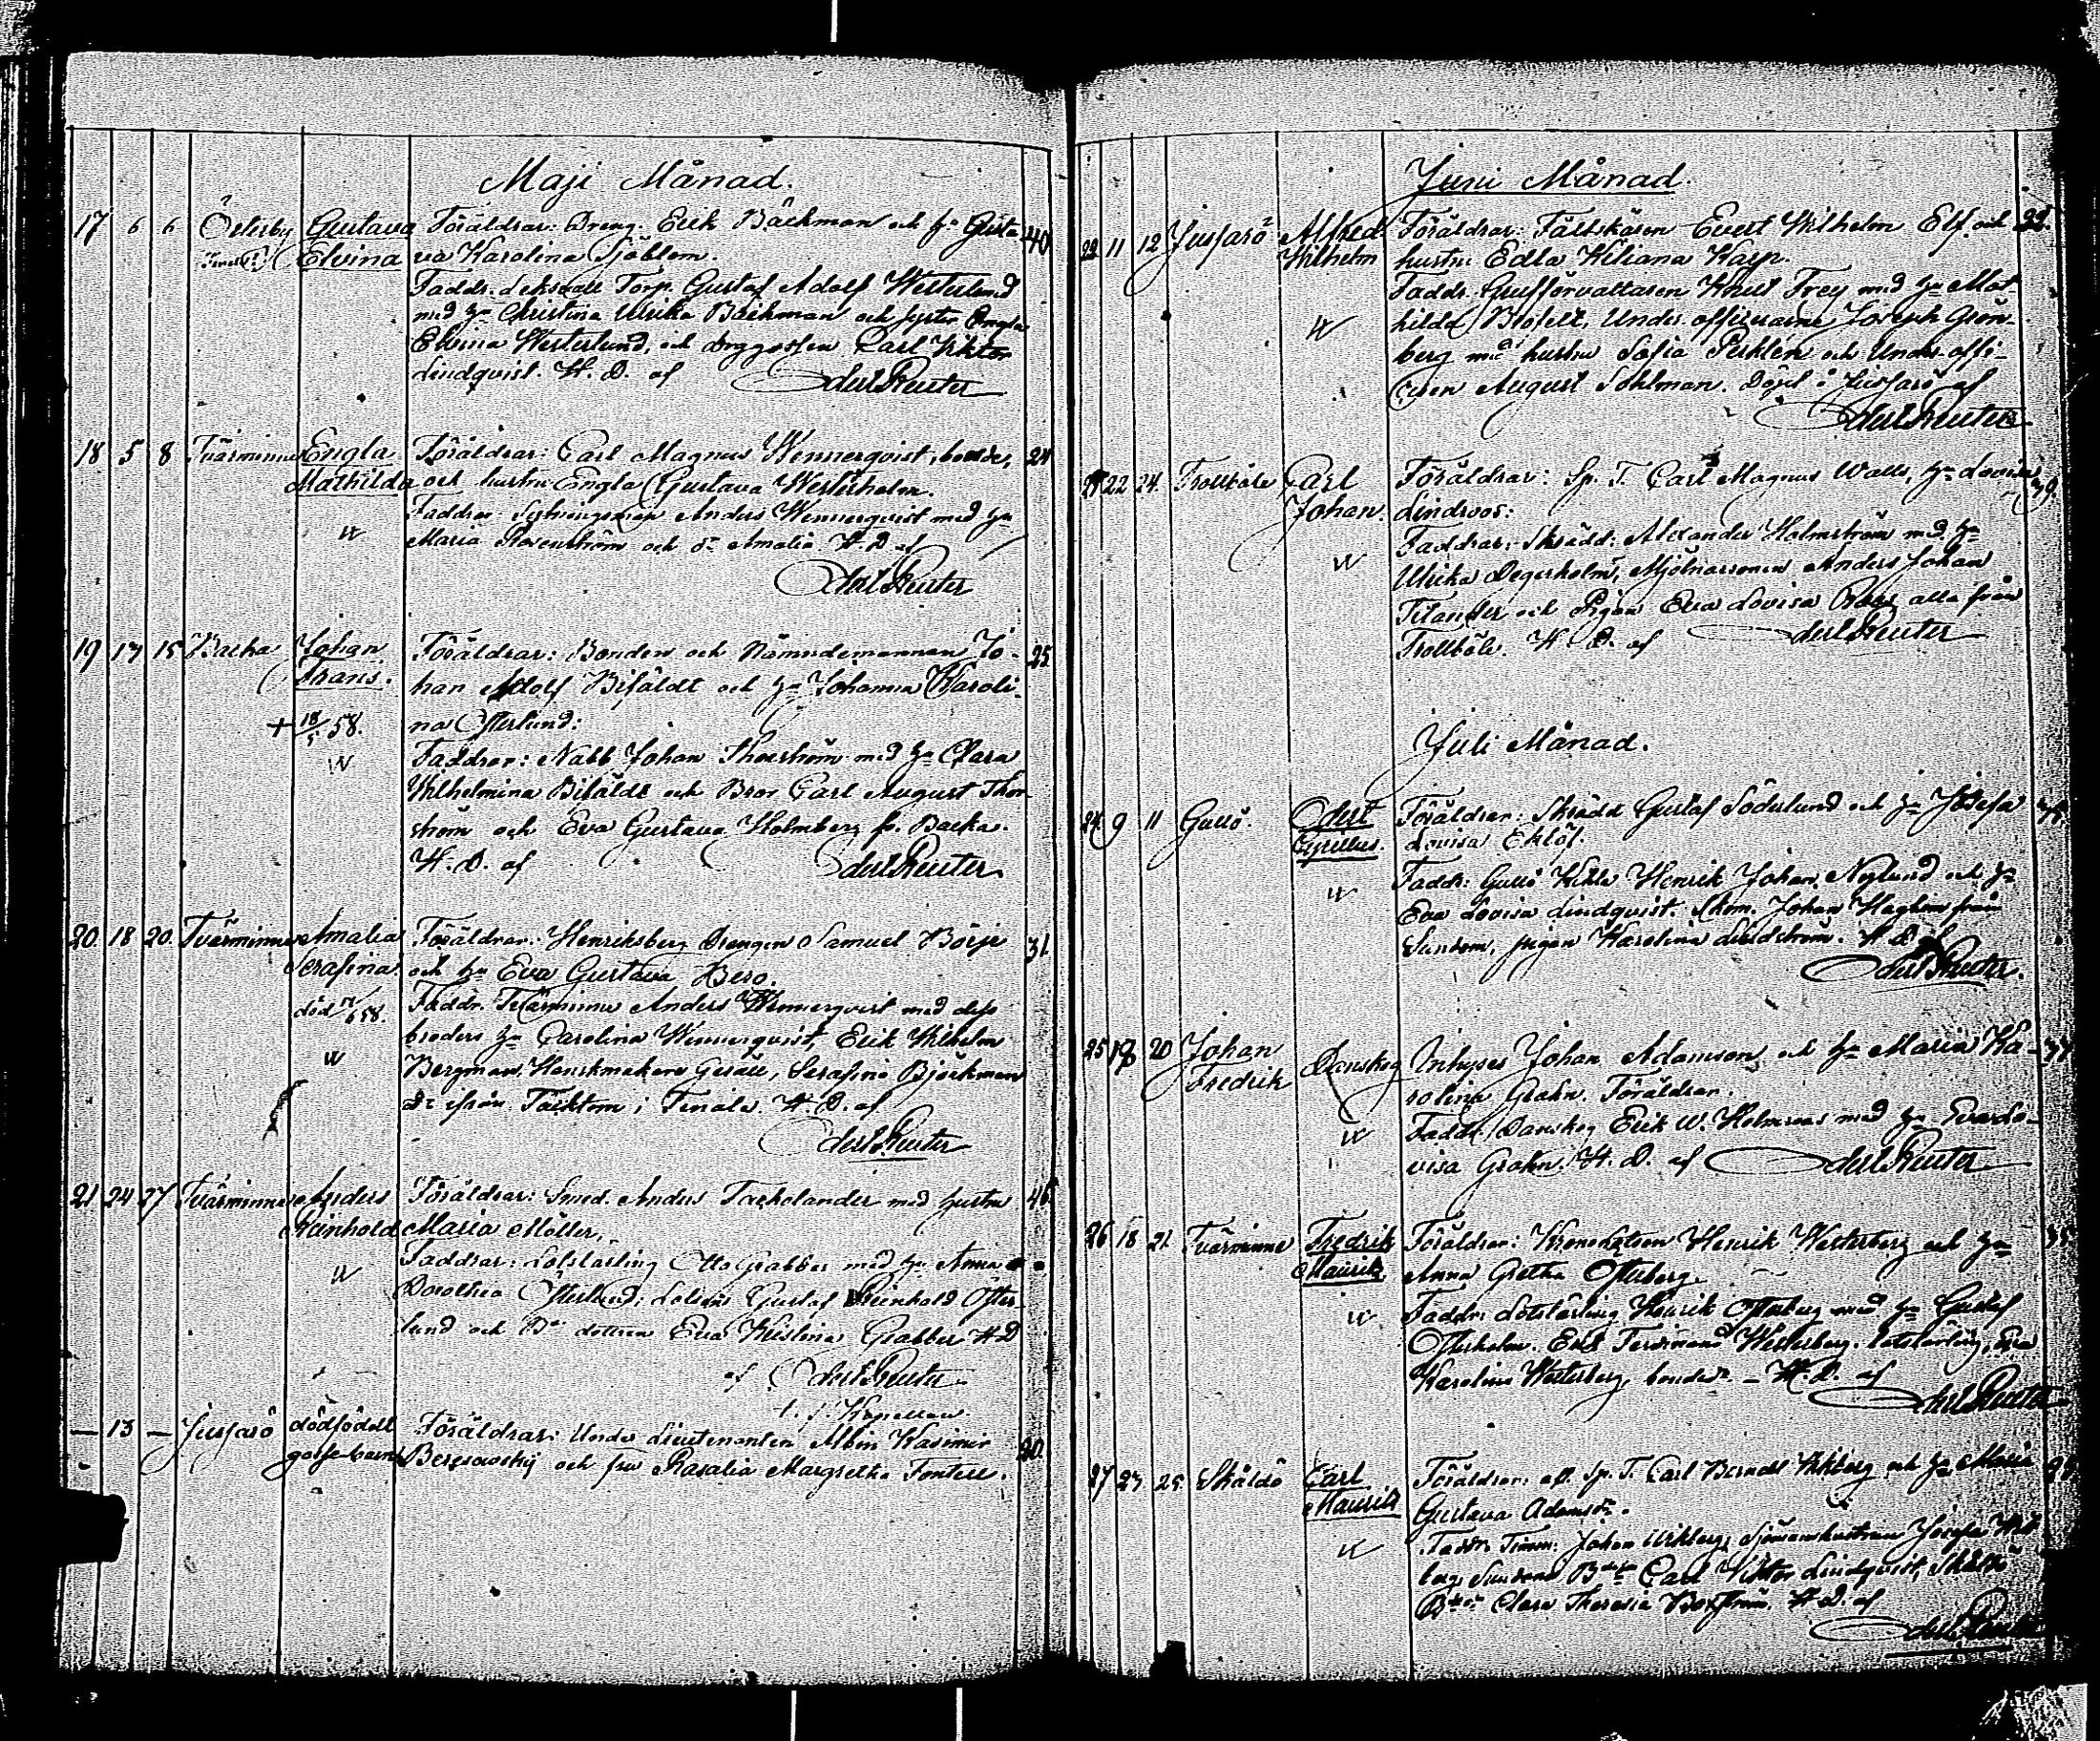 Maji Månad.
17 6 6 Österby Gustava Föräldrar: Dreng. Erik Bäckman och h: Gusta- 40.
Elvina va Karolina Sjöblom.
Faddr. Torp. Gustaf Adolf Westerlund
med h: Christina Ulrika Bäckman och syster Engla
Elvina Westerlund, och Carl Viktor
Lindqvist. H. D. af Adert Reuter
18 5 8 Tvärminne Engla Föräldrar: Carl Magnus Wennerqvist, bonde, 24
Mathilda och hustru Engla Gustava Westerholm.
Faddrar: Anders Wennerqvist med h:
Maria Rosenström och d: Amalia H. D. af
Reuter
19 13 15 Backa Johan Föräldrar: Bonden och Nämndemannen Jo- 25.
Frans. han Adolf Bifäldt och h: Johanna Karoli-
+ 18/5 58. na Österlund:
Faddrar: Nabb Johan Thorström med h: Clara
Wilhelmina Bifäldt och Bror Carl August Thor-
ström och Eva Gustava Holmberg fr. Backa.
H. D. af Reuter.
20. 18 20. Tvärminne Amalia Föräldrar: Henriksberg Drengen Samuel Börje 31.
Serafina. och h: Eva Gustava Berg.
död /6 58. Faddr. Tvärminne Anders Wennerqvist med dess
broders h: Carolina Wennerqvist, Erik Wilhelm
Bergman, Hanskmakare Gesäll, Serafina Björkman
ifrån Täcktom i Tenala. H. D. af
Reuter
21 24 27 Tvärminne Anders Föräldrar: Smed. Anders Tackolander med hustru 46.
Reinhold Maria Möller,
Faddrar: Lotslärling Otto Grabber med h: Anna
Dorothea Österlund; Lotsen Gustaf Reinhold Öster-
lund och dottren Eva Kristina Grabber H D
af Reuter
t. f. Kapellan.
— 13 — Jussarö dödfödt Föräldrar: Under Lieutenanten Albin Kasimir 30.
gosse-barn och fru Rasalia Margretha Fontell.
Juni Månad.
22 11 12 Jussarö Alfred Föräldrar: Fältskären Evert Wilhelm Elf. och 22.
Wilhelm hustru Edla Kiliana Karp.
Faddr. Grufförvaltaren Knut Frey med h: Mat-
hilda Blofelt, Under officerarne Joseph Grön-
berg med hustru Sofia Perklén och Under-offi-
ceren August Sohlman. Döpt i Jussarö af
Reuter
22 24. Trollböle Carl Föräldrar: Sp. T. Carl Magnus Walls, h: Lovisa 39.
Johan. Lindroos:
Faddrar: Skrädd: Alexander Holmström med h:
Ulrika Degerholm, Mjölnaresonen Anders Johan
Titander och Pigan Eva Lovisa alla från
Trollböle. H. D. af Reuter
Juli Månad.
24. 9 11 Gullö. Odert Föräldrar: Skrädd Gustaf Söderlund och h: Josefa
Cyrillus. Lovisa Eklöf.
Faddr: Gullö Henrik Johan Nylund och h:
Eva Lovisa Lindqvist. Johan Hagbom från
Sunbom, pigan Karolina Lindström. H. D. af
Reuter.
25 18 20 Johan Danskog Inhyses Johan Adamson och h: Maria Ka- 37
Fredrik rolina Grahn. Föräldrar.
Faddr. Danskog Erik W. Holmroos med h: Eva Lo-
visa Grahn. H. D. af Reuter
26 18 21. Tvärminne Fredrik Föräldrar: Kronolotsen Henrik Westerberg och h: 35
Maurits Anna Gretha Österberg.
Faddr. Lotslärling Henrik Österberg med h: Gustaf
Österholm. Erik Ferdinand Westerberg, lotslärling, Eva
Karolina Westerberg, bonded: – H. D. af
Reuter
27 23 25. Skåldö Carl Föräldrar: afl. Sp. T. Carl Berndt Wikberg och h: Maria
Maurits Gustava Adamsd:.
Faddr. Timm: Johan Wikberg, Sjömanshustrun Josefa Wik-
berg, Carl Viktor Lindqvist, Skåldö
Clara Theresia Boxström. H. D. af
Reuter